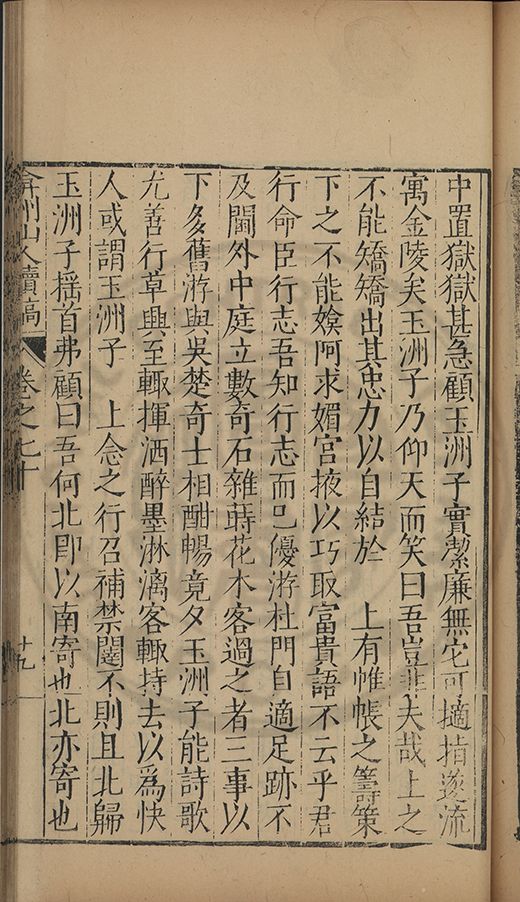 中置獄獄甚急顧玉洲子實潔廉無它可摘指遂流
寓金陵矣玉洲子乃仰天而笑曰吾豈非夫哉上之
不能矯矯出其忠力以自結於　上有帷帳之籌策
下之不能媕阿求媚宮掖以巧取富貴語不云乎君
行命臣行志吾知行志而已優游杜門自適足跡不
及閫外中庭立數奇石雜蒔花木客過之者三事以
下多舊游與吳楚奇士相酣暢竟夕玉洲子能詩歌
尤善行草興至輒揮洒醉墨淋漓客輒持去以為快
人或謂玉洲子　上念之行召補禁闥不則且北歸
玉洲子揺首弗顧曰吾何北即以南寄也北亦寄也
弇州山人續稿　卷之七十　十九